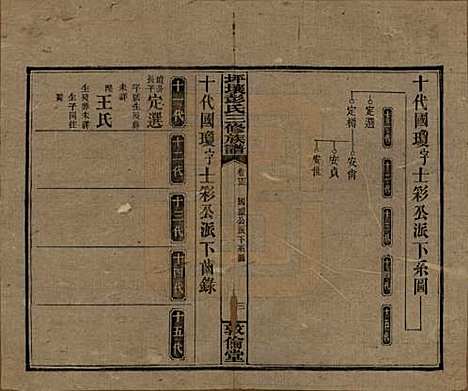 十代國瓊字士彩公派下系圖
十一代
十二代
十三代
十四代
十五代
定選
定樽
安尙
安貞
安世
坪壤彭氏三修族譜
國瓊公派下系圖
三
敦倫堂
十代國瓊字士彩公派下齒錄
十一代
十二代
十三代
十四代
十五代
定選
字届生歿
未詳
王氏
生歿葬未詳